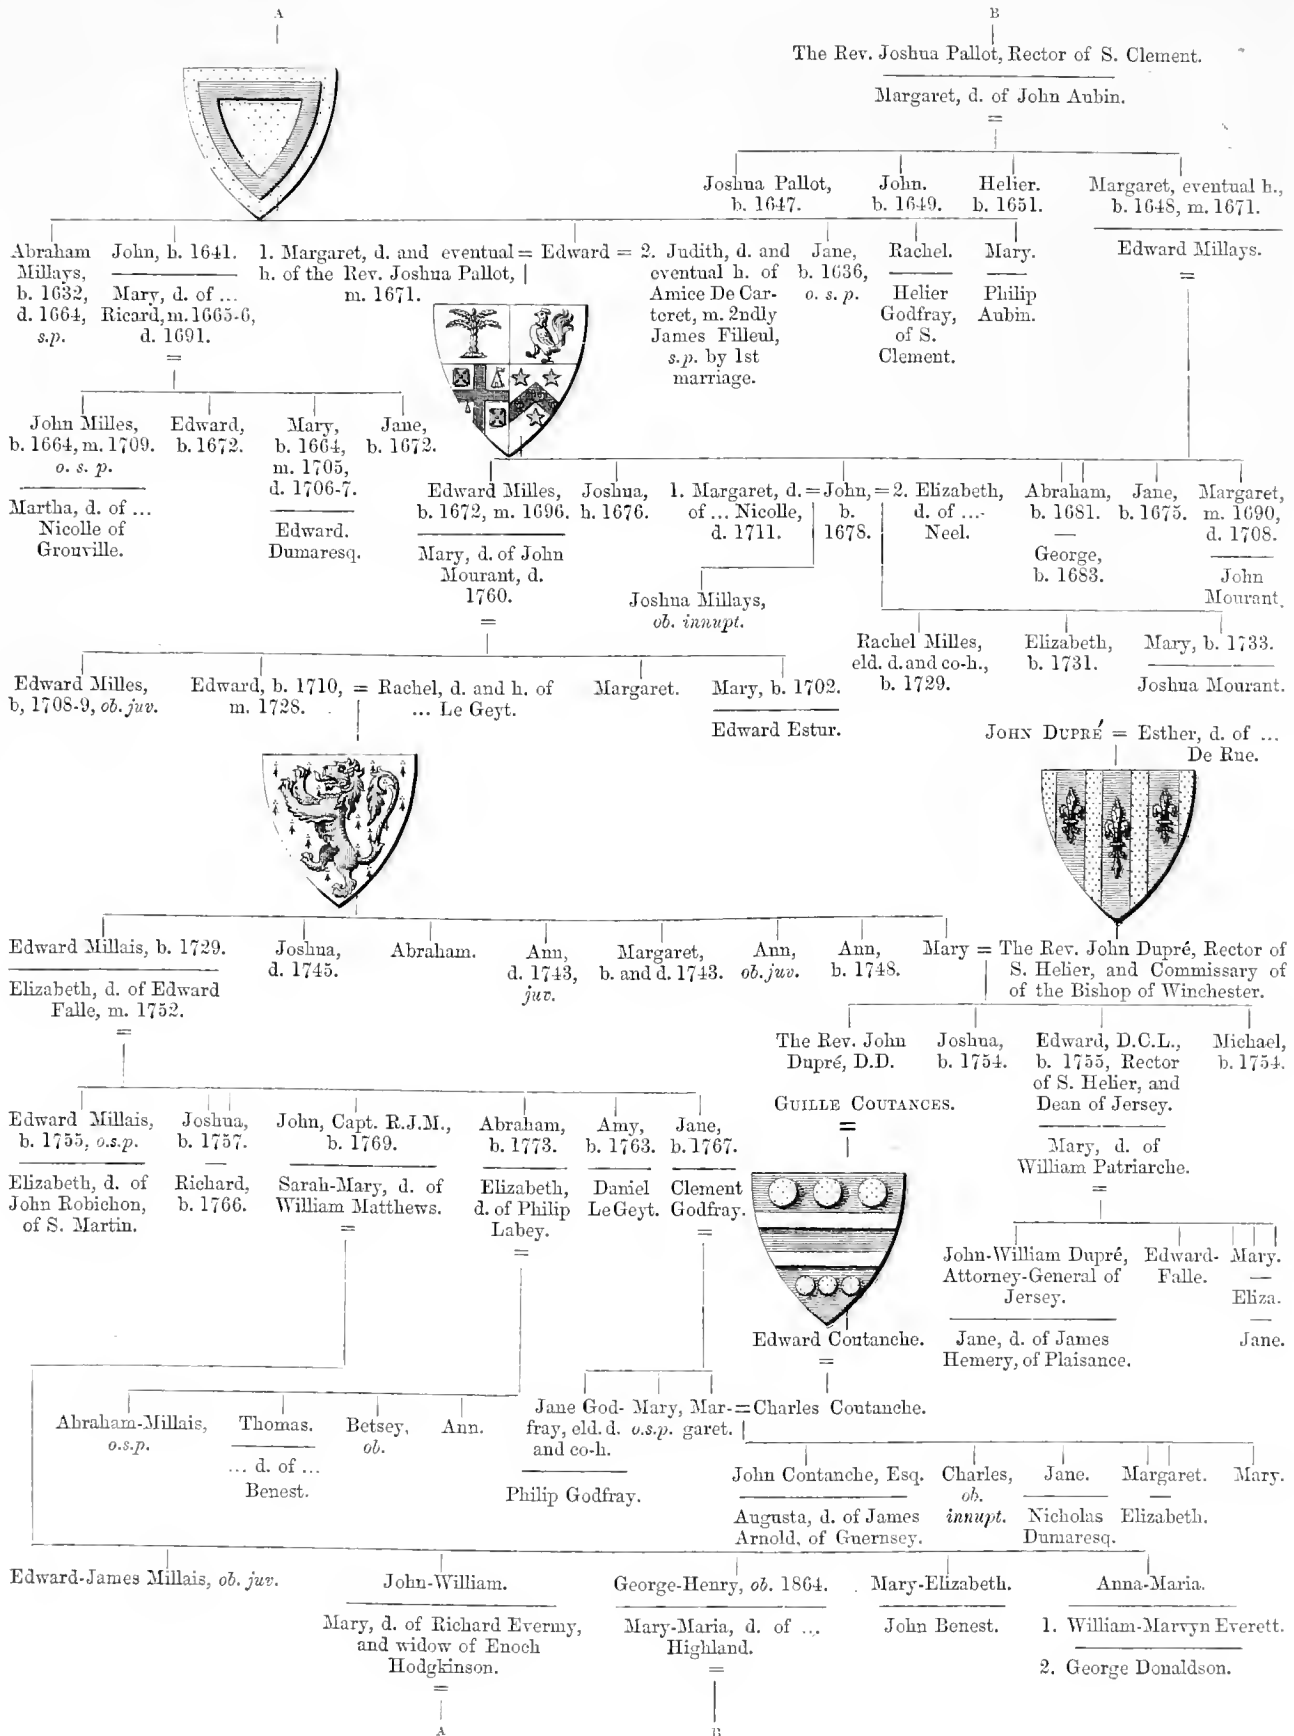 A
B
The Rev. Joshua Pallot, Rector of S. Clement.
Margaret, d. of John Aubin.
=
Joshua Pallot,
b. 1647.
John.
b. 1649.
Helier.
b. 1651.
Margaret, eventual h.,
b. 1648, m. 1671.
Edward Millays.
=
Abraham
Millays,
b. 1632,
d. 1664,
s.p.
John, b. 1641.
Mary, d. of ...
Ricard, m. 1665-6,
d. 1691.
=
1. Margaret, d. and eventual
h. of the Rev. Joshua Pallot,
m. 1671.
= Edward =
2. Judith, d. and
eventual h. of
Amice De Car-
teret, m. 2ndly
James Filleul,
s.p. by 1st
marriage.
Jane,
b. 1636,
o. s. p.
Rachel.
Helier
Godfray,
of S.
Clement.
Mary.
Philip
Aubin.
John Milles,
b. 1664, m. 1709.
o. s. p.
Martha, d. of ...
Nicolle of
Grouville.
Edward,
b. 1672.
Mary,
b. 1664,
m. 1705,
d. 1706-7.
Edward.
Dumaresq.
Jane,
b. 1672.
Edward Milles,
b. 1672, m. 1696.
Mary, d. of John
Mourant, d.
1760.
=
Joshua,
h. 1676.
1. Margaret, d.
of ... Nicolle,
d. 1711.
= John, =
b.
1678.
2. Elizabeth,
d. of ...
Neel.
Abraham,
b. 1681.
—
George,
b. 1683.
Jane,
b. 1675.
Margaret,
m. 1690,
d. 1708.
John
Mourant.
Joshua Millays,
ob. innupt.
Rachel Milles,
eld. d. and co-h.,
b. 1729.
Elizabeth,
b. 1731.
Mary, b. 1733.
Joshua Mourant.
Edward Milles,
b, 1708-9, ob. juv.
Edward, b. 1710,
m. 1728.
= Rachel, d. and h. of
... Le Geyt.
Margaret.
Mary, b. 1702.
Edward Estur.
JOHN DUPRÉ = Esther, d. of ...
De Rue.
Edward Millais, b. 1729.
Elizabeth, d. of Edward
Falle, m. 1752.
=
Joshua,
d. 1745.
Abraham.
Ann,
d. 1743,
juv.
Margaret,
b. and d. 1743.
Ann,
ob. juv.
Ann,
b. 1748.
Mary = The Rev. John Dupré, Rector of
S. Helier, and Commissary of
of the Bishop of Winchester.
The Rev. John
Dupré, D.D.
Joshua,
b. 1754.
Edward, D.C.L.,
b. 1755, Rector
of S. Helier, and
Dean of Jersey.
Mary, d. of
William Patriarche.
=
Michael,
b. 1754.
GUILLE COUTANCES.
=
Edward Millais,
b. 1755, o.s.p.
Elizabeth, d. of
John Robichon,
of S. Martin.
Joshua,
b. 1757.
—
Richard,
b. 1766.
John, Capt. R.J.M.,
b. 1769.
Sarah-Mary, d. of
William Matthews.
=
Abraham,
b. 1773.
Elizabeth,
d. of Philip
Labey.
=
Amy,
b. 1763.
Daniel
LeGeyt.
Jane,
b. 1767.
Clement
Godfray.
=
John-William Dupré,
Attorney-General of
Jersey.
Jane, d. of James
Hemery, of Plaisance.
Edward-
Falle.
Mary.
—
Eliza.
—
Jane.
Edward Coutanche.
=
Abraham-Millais,
o.s.p.
Thomas.
... d. of ...
Benest.
Betsey,
ob.
Ann.
Jane God-
fray, eld. d.
and co-h.
Philip Godfray.
Mary,
o.s.p.
Mar-
garet.
= Charles Coutanche.
John Contanche, Esq.
Augusta, d. of James
Arnold, of Guernsey.
Charles,
ob.
innupt.
Jane.
Nicholas
Dumaresq.
Margaret.
—
Elizabeth.
Mary.
Edward-James Millais, ob. juv.
John-William.
Mary, d. of Richard Evermy,
and widow of Enoch
Hodgkinson.
=
A
George-Henry, ob. 1864.
Mary-Maria, d. of ...
Highland.
=
B
Mary-Elizabeth.
John Benest.
Anna-Maria.
1. William-Marvyn Everett.
2. George Donaldson.